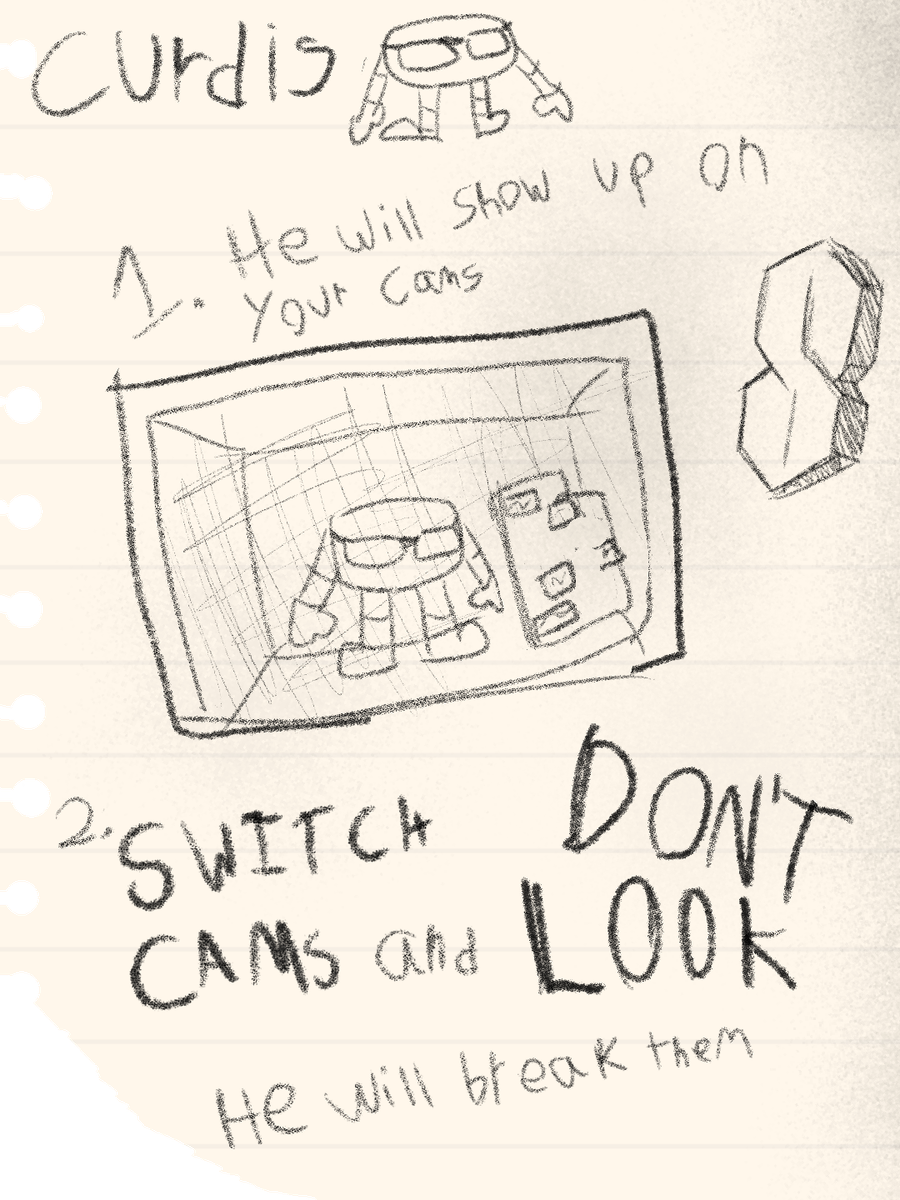 Curdis
1. He will show up on
your cams
8
2. SWITCH
CAMS and
DON'T
LOOK
He will break them